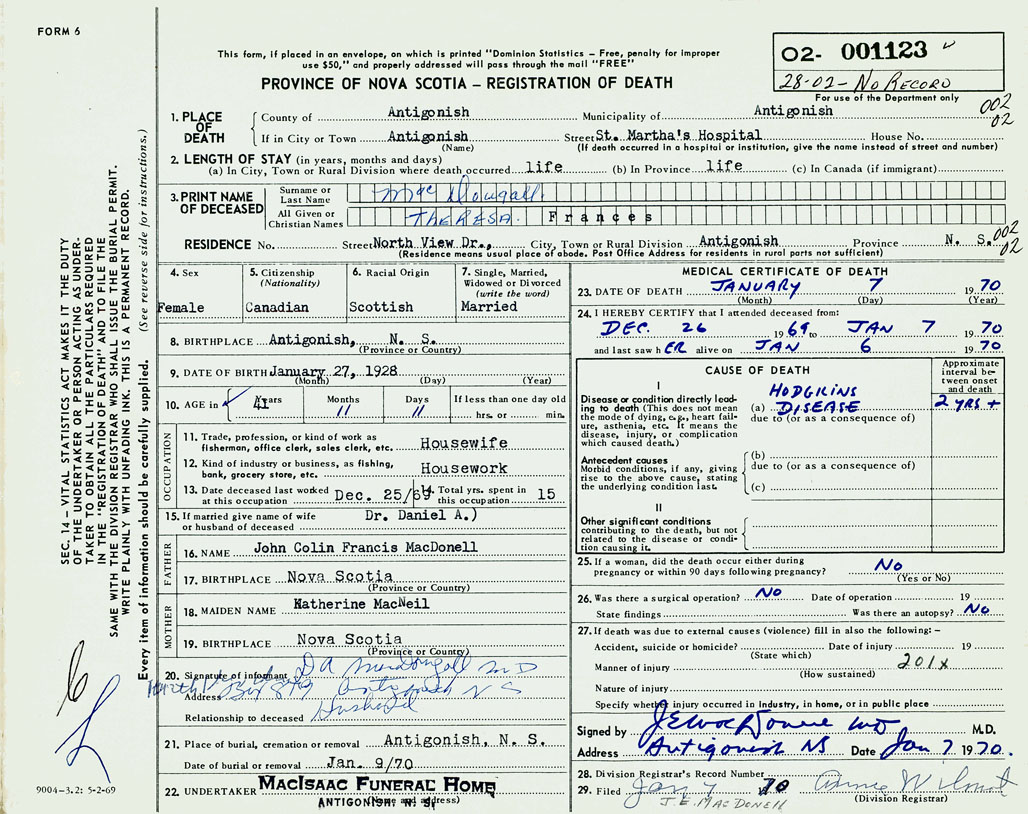 FORM 6
O2- 001123
28-02-No Record
For use of the Department only
This form, if placed in an envelope, on which is printed "Dominion Statistics – Free, penalty for improper
use $50," and properly addressed will pass through the mail "FREE"
PROVINCE OF NOVA SCOTIA – REGISTRATION OF DEATH
002
02
1. PLACE OF DEATH County of Antigonish Municipality of Antigonish
If in City or Town Antigonish Street St. Martha's Hospital House No.
(Name) (If death occurred in a hospital or institution, give the name instead of street and number)
2. LENGTH OF STAY (in years, months and days)
(a) In City, Town or Rural Division where death occurred life (b) In Province life (c) In Canada (if immigrant)
3. PRINT NAME OF DECEASED Surname or Last Name MacDougall
All Given or Christian Names THERESA. Frances
RESIDENCE No. Street North View Dr., City, Town or Rural Division Antigonish Province N. S.
002
02
(Residence means usual place of abode. Post Office Address for residents in rural parts not sufficient)
4. Sex
Female
5. Citizenship
(Nationality)
Canadian
6. Racial Origin
Scottish
7. Single, Married,
Widowed or Divorced
(write the word)
Married
8. BIRTHPLACE Antigonish, N. S.
(Province or Country)
9. DATE OF BIRTH January 27, 1928
(Month) (Day) (Year)
10. AGE in Years Months Days If less than one day old
41 11 11 hrs. or min.
OCCUPATION
11. Trade, profession, or kind of work as
fisherman, office clerk, sales clerk, etc. Housewife
12. Kind of industry or business, as fishing,
bank, grocery store, etc. Housework
13. Date deceased last worked
at this occupation Dec. 25/69
14. Total yrs. spent in
this occupation 15
15. If married give name of wife
or husband of deceased Dr. Daniel A.)
FATHER
16. NAME John Colin Francis MacDonell
17. BIRTHPLACE Nova Scotia
(Province or Country)
MOTHER
18. MAIDEN NAME Katherine MacNeil
19. BIRTHPLACE Nova Scotia
(Province or Country)
20. Signature of informant D A MacDougall MD
Address Box 879 Antigonish N S
Relationship to deceased Husband
21. Place of burial, cremation or removal Antigonish, N. S.
Date of burial or removal Jan. 9/70
22. UNDERTAKER MacIsaac Funeral Home
ANTIGONISH, N. S.
(Name and address)
MEDICAL CERTIFICATE OF DEATH
23. DATE OF DEATH JANUARY 7 1970
(Month) (Day) (Year)
24. I HEREBY CERTIFY that I attended deceased from:
DEC. 26 1969 to JAN 7 1970
and last saw h ER alive on JAN 6 1970
CAUSE OF DEATH
Approximate
interval be-
tween onset
and death
I
Disease or condition directly lead-
ing to death (This does not mean
the mode of dying, e.g., heart fail-
ure, asthenia, etc. It means the
disease, injury, or complication
which caused death.)
HODGKINS
(a) DISEASE 2 YRS +
due to (or as a consequence of)
Antecedent causes
Morbid conditions, if any, giving
rise to the above cause, stating
the underlying condition last.
(b)
due to (or as a consequence of)
(c)
II
Other significant conditions
contributing to the death, but not
related to the disease or condi-
tion causing it.
25. If a woman, did the death occur either during
pregnancy or within 90 days following pregnancy? No
(Yes or No)
26. Was there a surgical operation? NO Date of operation 19
State findings Was there an autopsy? No
27. If death was due to external causes (violence) fill in also the following:–
Accident, suicide or homicide? Date of injury 19
(State which)
Manner of injury 201x
(How sustained)
Nature of injury
Specify whether injury occurred in industry, in home, or in public place
Signed by J E MacDonell MD M.D.
Address Antigonish NS Date Jan 7 1970.
28. Division Registrar's Record Number
29. Filed Jan 7 70
J. E. MACDONELL
(Division Registrar)
SEC. 14 – VITAL STATISTICS ACT MAKES IT THE DUTY
OF THE UNDERTAKER OR PERSON ACTING AS UNDER-
TAKER TO OBTAIN ALL THE PARTICULARS REQUIRED
IN THE "REGISTRATION OF DEATH" AND TO FILE THE
SAME WITH THE DIVISION REGISTRAR WHO SHALL ISSUE THE BURIAL PERMIT.
WRITE PLAINLY WITH UNFADING INK. THIS IS A PERMANENT RECORD.
Every item of information should be carefully supplied. (See reverse side for instructions.)
9004–3.2: 5-2-69